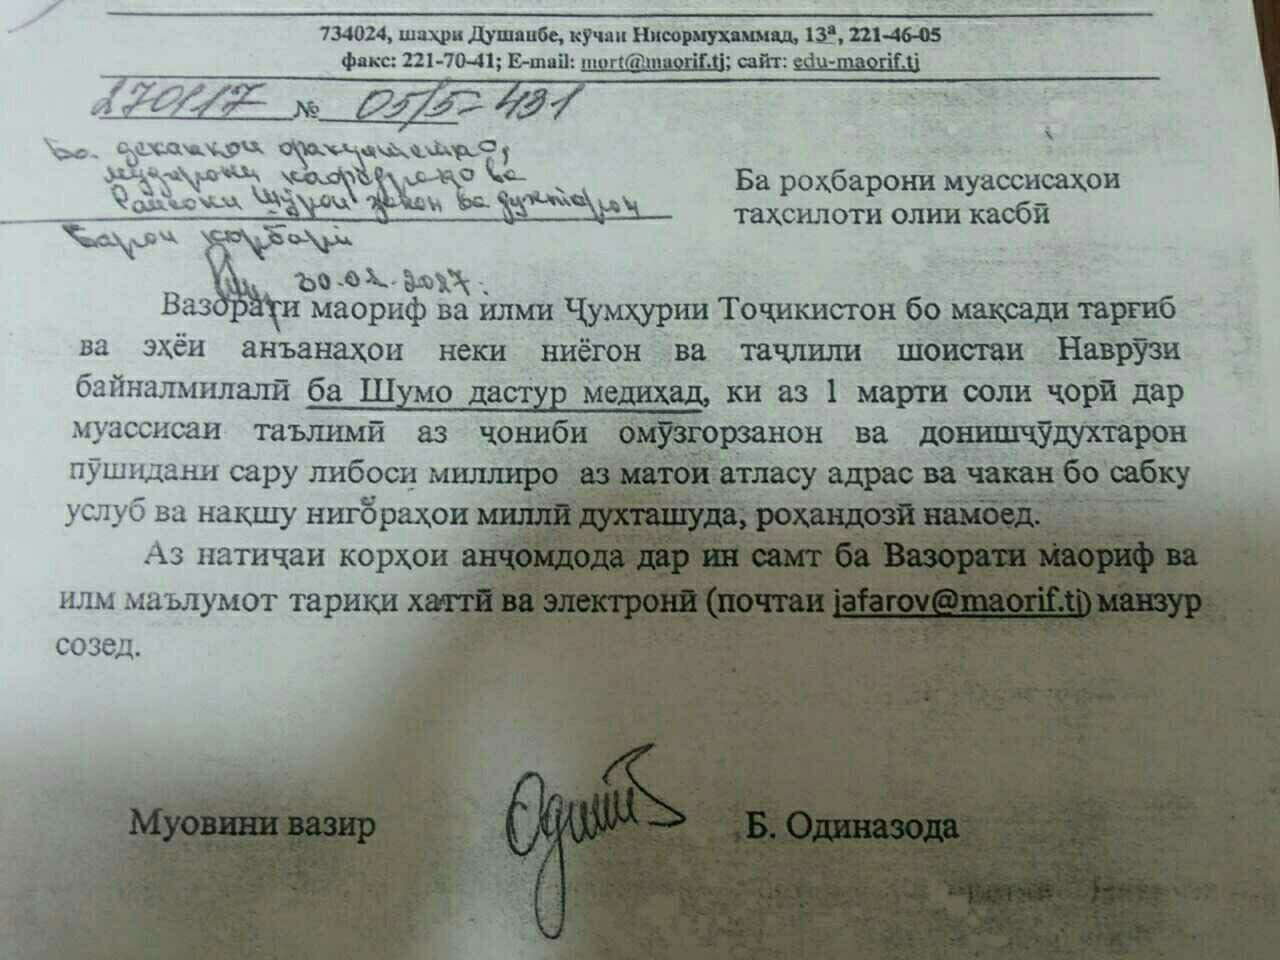 734024, шаҳри Душанбе, кӯчаи Нисормуҳаммад, 13ᵃ, 221-46-05
факс: 221-70-41; E-mail: mort@maorif.tj; сайт: edu-maorif.tj
270117 № 05/5-431
Ба деканҳои факултетҳо,
мудирони кафедраҳо ва
Раисони Шӯрои занон ва духтарон
Барои корбарӣ
Ба роҳбарони муассисаҳои
таҳсилоти олии касбӣ
Вазорати маориф ва илми Ҷумҳурии Тоҷикистон бо мақсади тарғиб
ва эҳёи анъанаҳои неки ниёгон ва таҷлили шоистаи Наврӯзи
байналмилалӣ ба Шумо дастур медиҳад, ки аз 1 марти соли ҷорӣ дар
муассисаи таълимӣ аз ҷониби омӯзгорзанон ва донишҷӯдухтарон
пӯшидани сару либоси миллиро аз матои атласу адрас ва чакан бо сабку
услуб ва нақшу нигораҳои миллӣ духташуда, роҳандозӣ намоед.
Аз натиҷаи корҳои анҷомдода дар ин самт ба Вазорати маориф ва
илм маълумот тариқи хаттӣ ва электронӣ (почтаи jafarov@maorif.tj) манзур
созед.
Муовини вазир Б. Одиназода